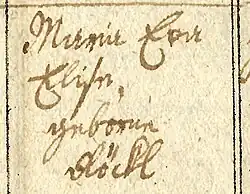 Maria Eva
Elise,
geborne
Röckl